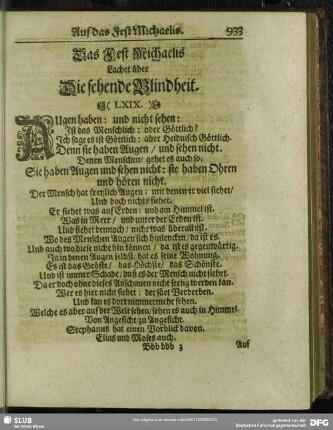 Auf das Fest Michaelis. 933
Das Fest Michaelis
Lachet über
Die sehende Blindheit.
( LXIX. )
AUgen haben: und nicht sehen:
Ist das Menschlich: oder Göttlich?
Ich sage es ist Göttlich: aber Heidnisch Göttlich.
Denn sie haben Augen / und sehen nicht.
Denen Menschen / gehet es auch so.
Sie haben Augen und sehen nicht: sie haben Ohren
und hören nicht.
Der Mensch hat zwey Augen: mit denen er viel siehet /
Und doch nichts siehet.
Er siehet was auf Erden: und am Himmel ist.
Was im Meer / und unter der Erden ist.
Und siehet dennoch / nicht was überall ist.
Wo des Menschen Augen sich hinlencken / da ist es.
Und auch wo diese nicht hin können / da ist es gegenwärtig.
Ja in denen Augen selbst / hat es seine Wohnung.
Es ist das Gröste / das Höchste / das Schönste.
Und ist immer Schade / daß es der Mensch nicht siehet.
Da er doch ohne dieses Anschauen nicht seelig werden kan.
Wer es hier nicht siehet: der siehet Verderben.
Und kan es dort nimmermehr sehen.
Welche es aber auf der Welt sehen / sehen es auch in Himmel.
Von Angesicht zu Angesicht.
Stephanus hat einen Vorblick davon.
Elias und Moses auch.
Bbb bbb 3 Auf
SLUB
Wir führen Wissen.
gefördert von der
Deutschen Forschungsgemeinschaft
DFG